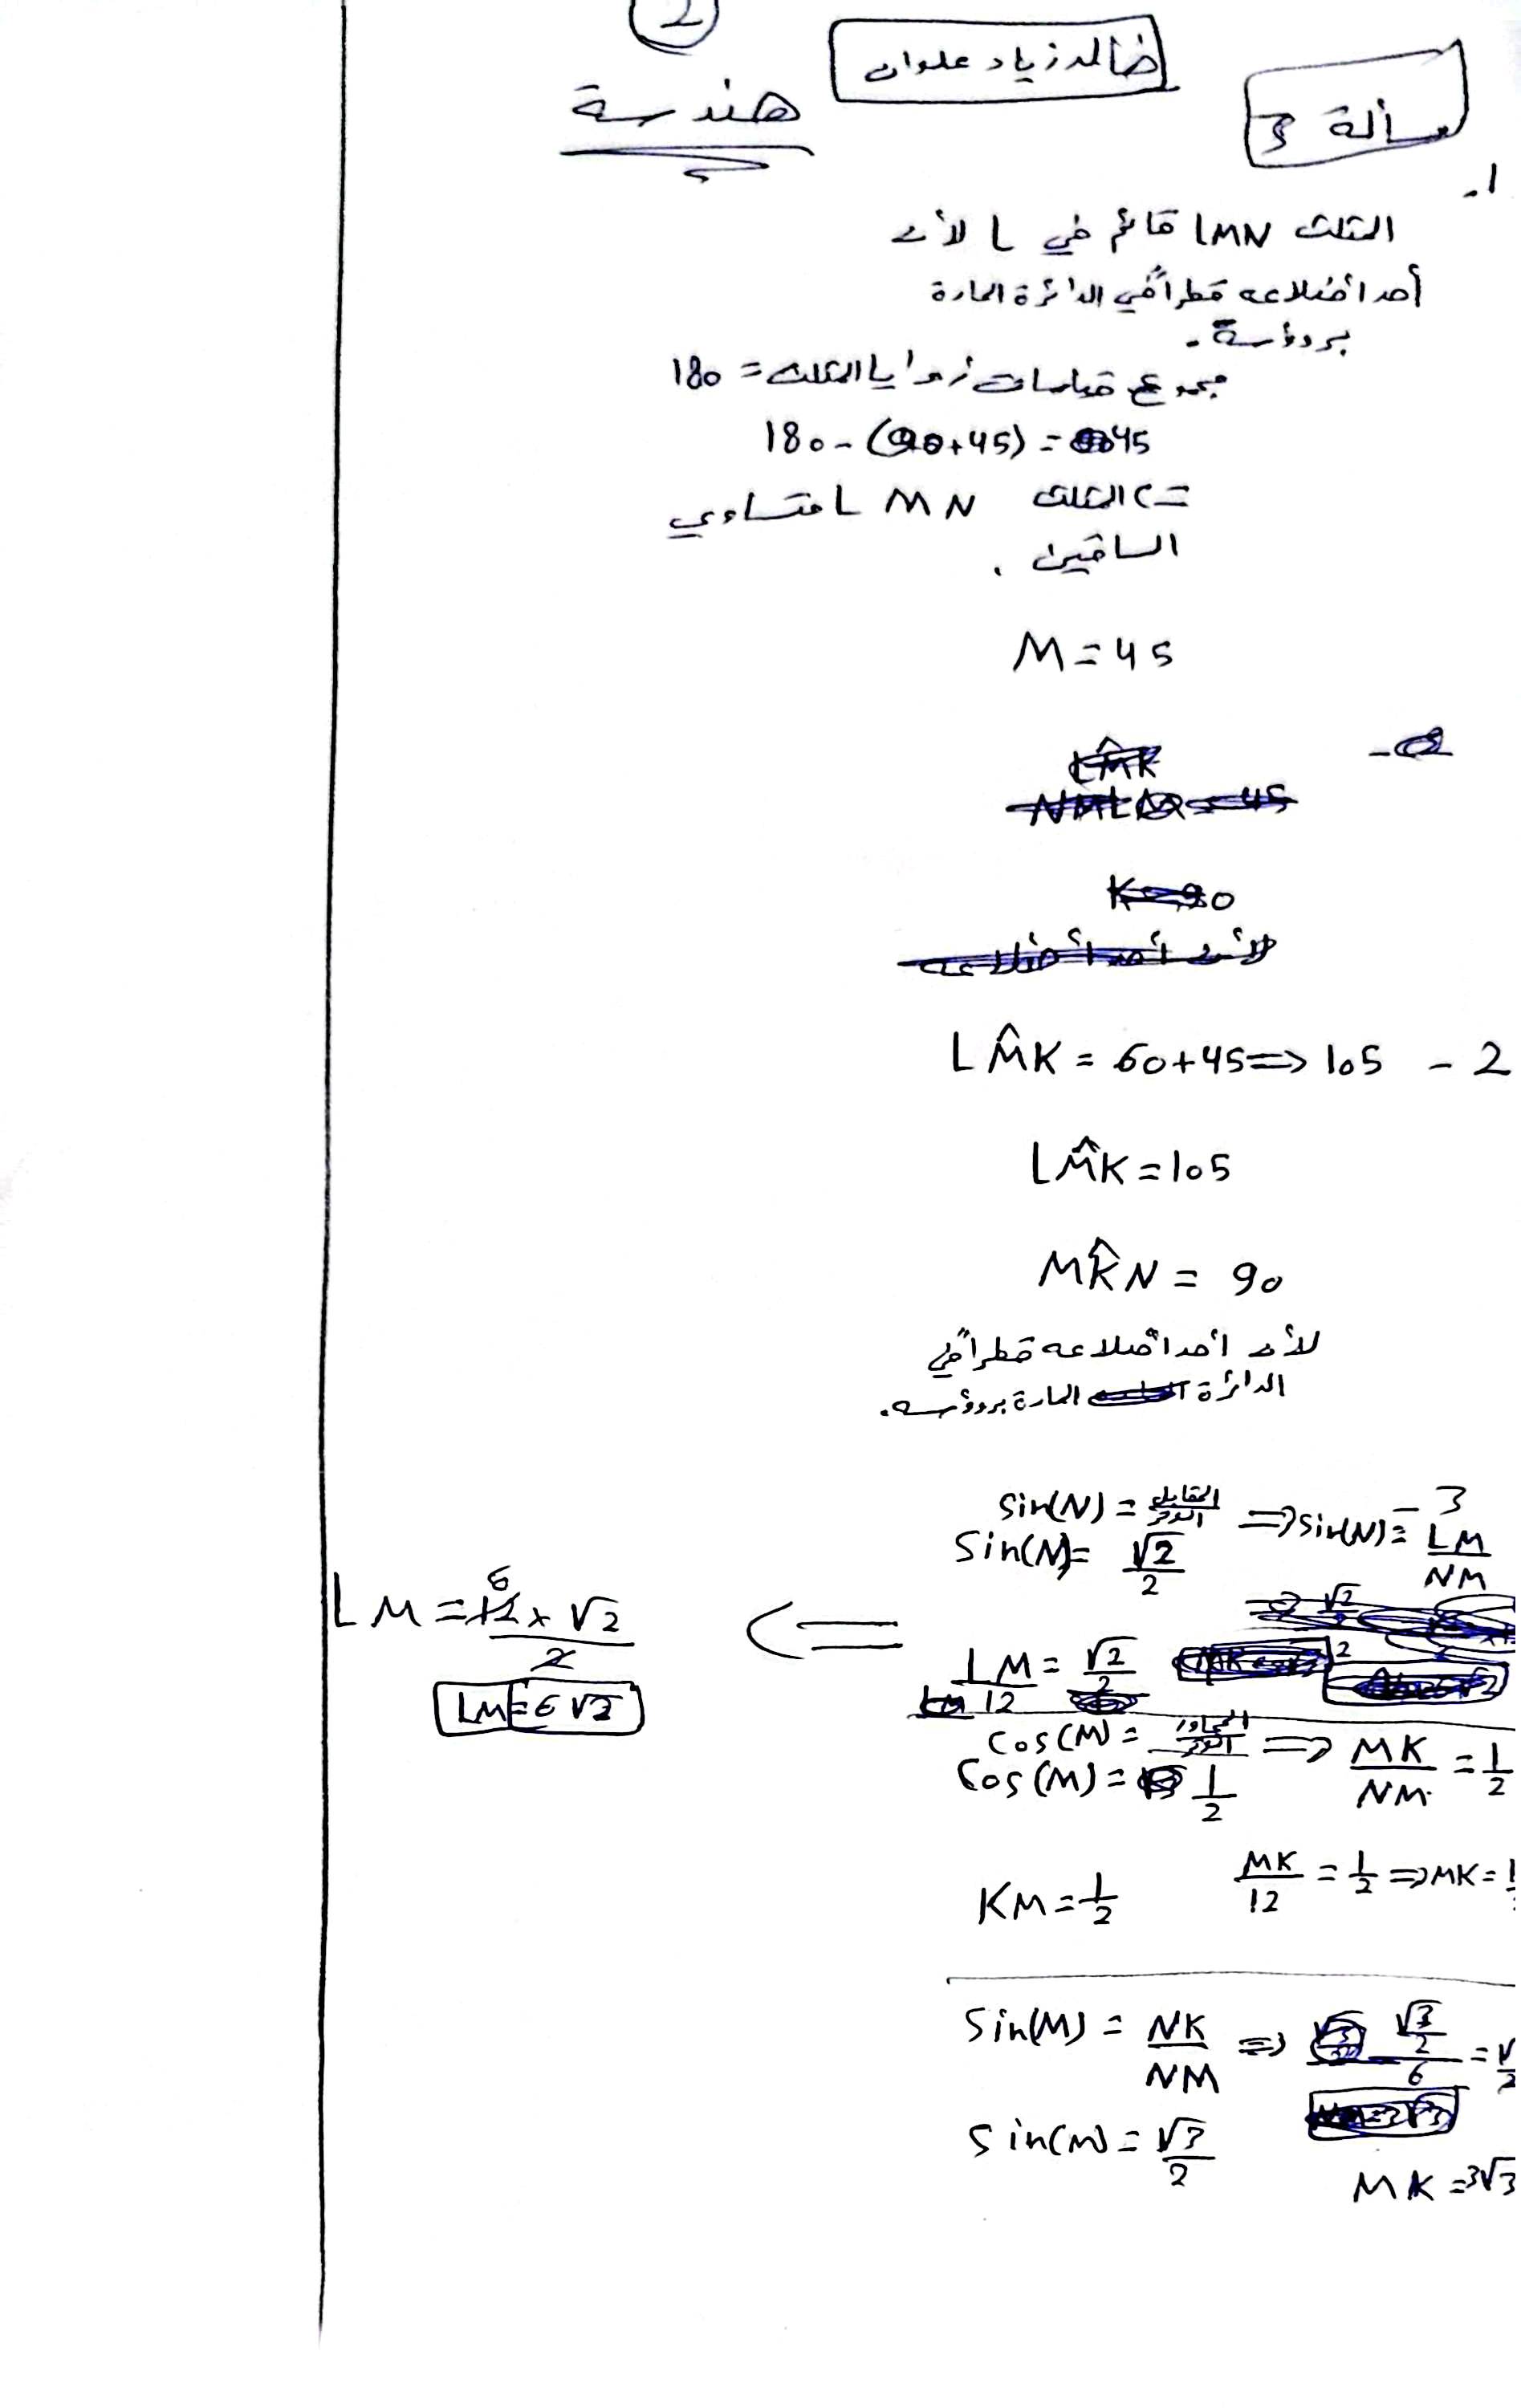 2
خالد زياد علوان
هندسة
مسألة 3
1-
المثلث LMN قائم في L لأن
أحد أضلاعه قطراً في الدائرة المارة
برؤوسة.
مجموع قياسات زوايا المثلث = 180
180 - (90+45) = 45
المثلث LMN متساوي
الساقين.
M = 45
LM̂K
K = 90
لأن أحد أضلاعه
2 - LM̂K = 60+45 => 105
LM̂K = 105
MK̂N = 90
لأن احد اضلاعه قطراً في
الدائرة المارة برووسه.
3 - sin(N) = المقابل/الوتر => sin(N) = LM/NM
Sin(N) = √2/2
LM/12 = √2/2
LM = 12 × √2/2
6
LM = 6√2
Cos(M) = المجاور/الوتر => MK/NM = 1/2
Cos(M) = 1/2
MK/12 = 1/2 => MK =
KM = 1/2
Sin(M) = NK/NM => √3/2/6 =
Sin(M) = √3/2
MK = 3√3